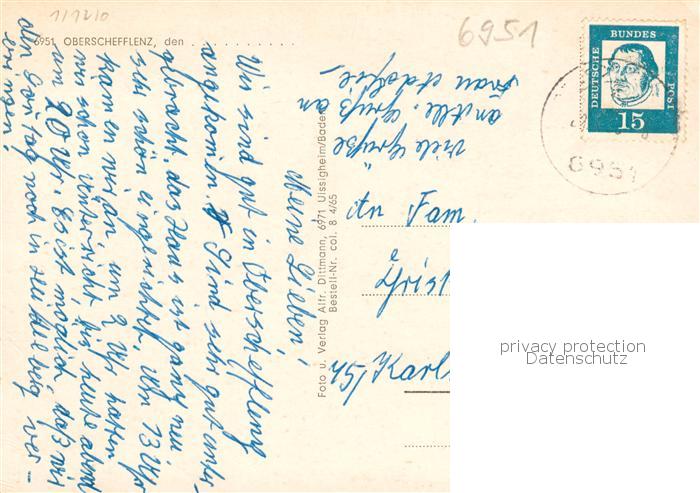 1/1210
6951 OBERSCHEFFLENZ, den
6951
DEUTSCHE BUNDESPOST
15
6951
Meine Lieben!
Wir sind gut in Oberschefflenz
angekommen. Sind sehr gut unter-
gebracht, das Haus ist ganz neu
sehr schön eingerichtet. Um 13 Uhr
kamen wir an, um 2 Uhr hatten
wir schon Unterricht bis heute abend
um 20 Uhr. Es ist möglich, daß wir
den Sonntag noch in Heidelberg ver-
bringen!
Viele Grüße
Gruß an
Frau
Foto u. Verlag Alfr. Dittmann, 6971 Uissigheim/Baden
Bestell-Nr. col. 8 4/65
An Fam.
Christ
75 Karl
privacy protection
Datenschutz